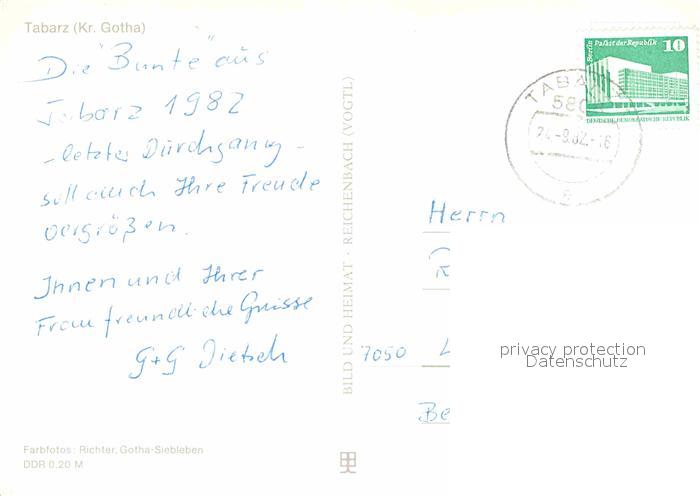 Tabarz (Kr. Gotha)
Die "Bunte" aus
Tabarz 1982
- letzter Durchgang -
soll auch Ihre Freude
vergrößen.
Ihnen und Ihrer
Frau freundliche Grüsse
G+G Dietsch
Farbfotos: Richter, Gotha-Siebleben
DDR 0,20 M
BILD UND HEIMAT · REICHENBACH (VOGTL)
Berlin Palast der Republik 10
DEUTSCHE DEMOKRATISCHE REPUBLIK
TABARZ
580
24.-9.82.-16
Herrn
R
7050 L
Be
privacy protection
Datenschutz